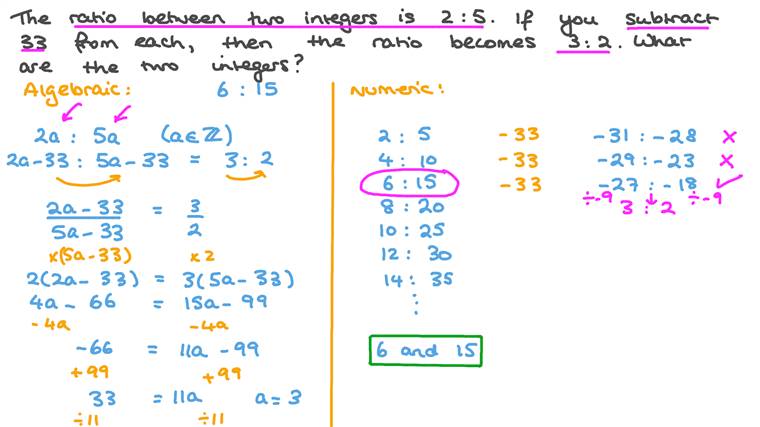 The ratio between two integers is 2:5. If you subtract
33 from each, then the ratio becomes 3:2. What
are the two integers?
Algebraic:
6 : 15
2a : 5a (a∈ℤ)
2a-33 : 5a-33 = 3 : 2
2a-33 / 5a-33 = 3 / 2
×(5a-33) ×2
2(2a-33) = 3(5a-33)
4a - 66 = 15a - 99
-4a -4a
-66 = 11a - 99
+99 +99
33 = 11a a = 3
÷11 ÷11
Numeric:
2 : 5 -33 -31 : -28 ×
4 : 10 -33 -29 : -23 ×
6 : 15 -33 -27 : -18 ✓
÷-9 3 : 2 ÷-9
8 : 20
10 : 25
12 : 30
14 : 35
⋮
6 and 15